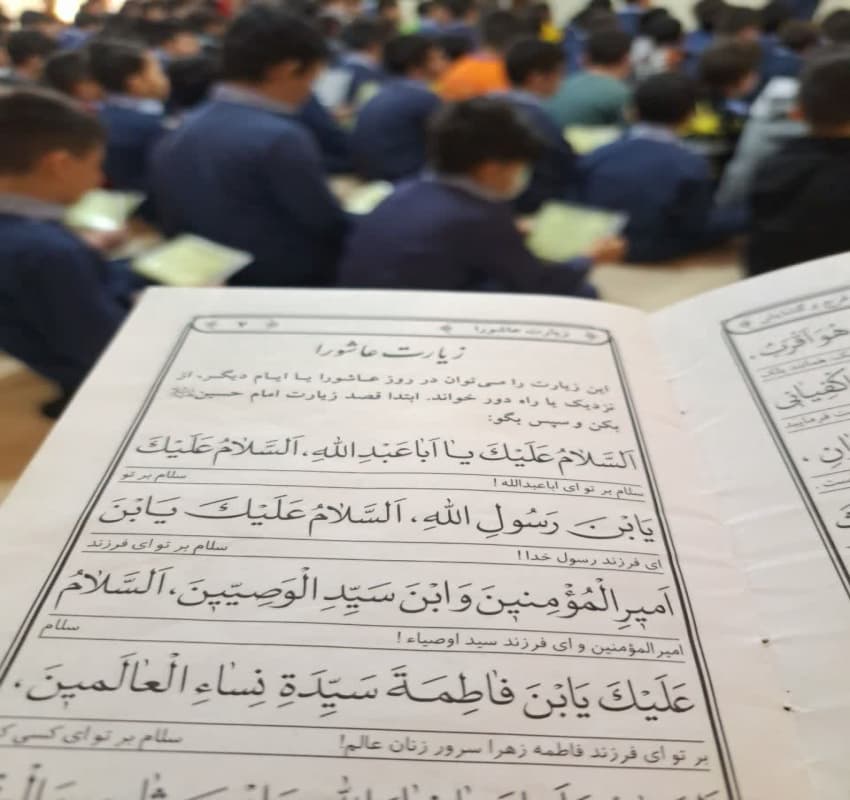 زیارت عاشورا
۲
زیارت عاشورا
این زیارت را می‌توان در روز عاشورا یا ایام دیگر، از
نزدیک یا راه دور خواند. ابتدا قصد زیارت امام حسین
بکن و سپس بگو:
اَلسَّلامُ عَلَیْكَ یا اَباعَبْدِ اللهِ، اَلسَّلامُ عَلَیْكَ
سلام بر تو ای اباعبدالله! سلام بر تو
یَابْنَ رَسُولِ اللهِ، اَلسَّلامُ عَلَیْكَ یَابْنَ
ای فرزند رسول خدا! سلام بر تو ای فرزند
اَمیرِالْمُؤْمِنینَ وَ ابْنَ سَیِّدِ الْوَصِیّینَ، اَلسَّلامُ
امیرالمؤمنین و ای فرزند سید اوصیاء! سلام
عَلَیْكَ یَابْنَ فاطِمَةَ سَیِّدَةِ نِساءِ الْعالَمینَ،
بر تو ای فرزند فاطمه زهرا سرور زنان عالم! سلام بر تو ای کسی
هُوَ اَقْرَبُ،